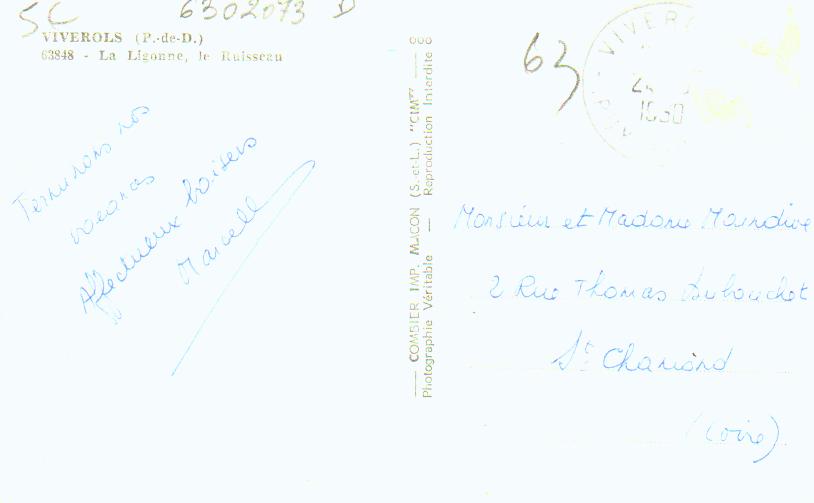 SC 6302073 D
VIVEROLS (P.-de-D.)
63848 - La Ligonne, le Ruisseau
Terminons nos
vacances
Affectueux baisers
Marcelle
COMBIER IMP. MACON (S.-et-L.) "CIM"
Photographie Véritable — Reproduction Interdite
63
VIVEROLS
1630
Monsieur et Madame
2 Rue Thomas Dubouchet
St Chamond
(Loire)